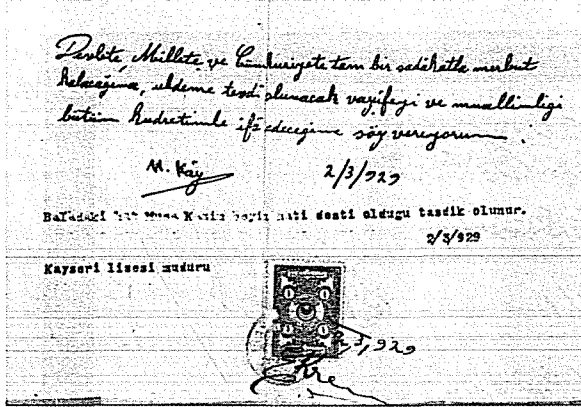 Devlete, Millete ve Cumhuriyete tam bir sadakatle merbut
kalacağıma, uhdeme tevdi olunacak vazifeyi ve muallimligi
bütün kudretimle ifa edeceğime söz vereyorum.
M. Kâz
2/3/929
Baladaki hat Musa Kazim beyin hati desti oldugu tasdik olunur.
2/3/929
Kayseri lisesi muduru
2,3,929